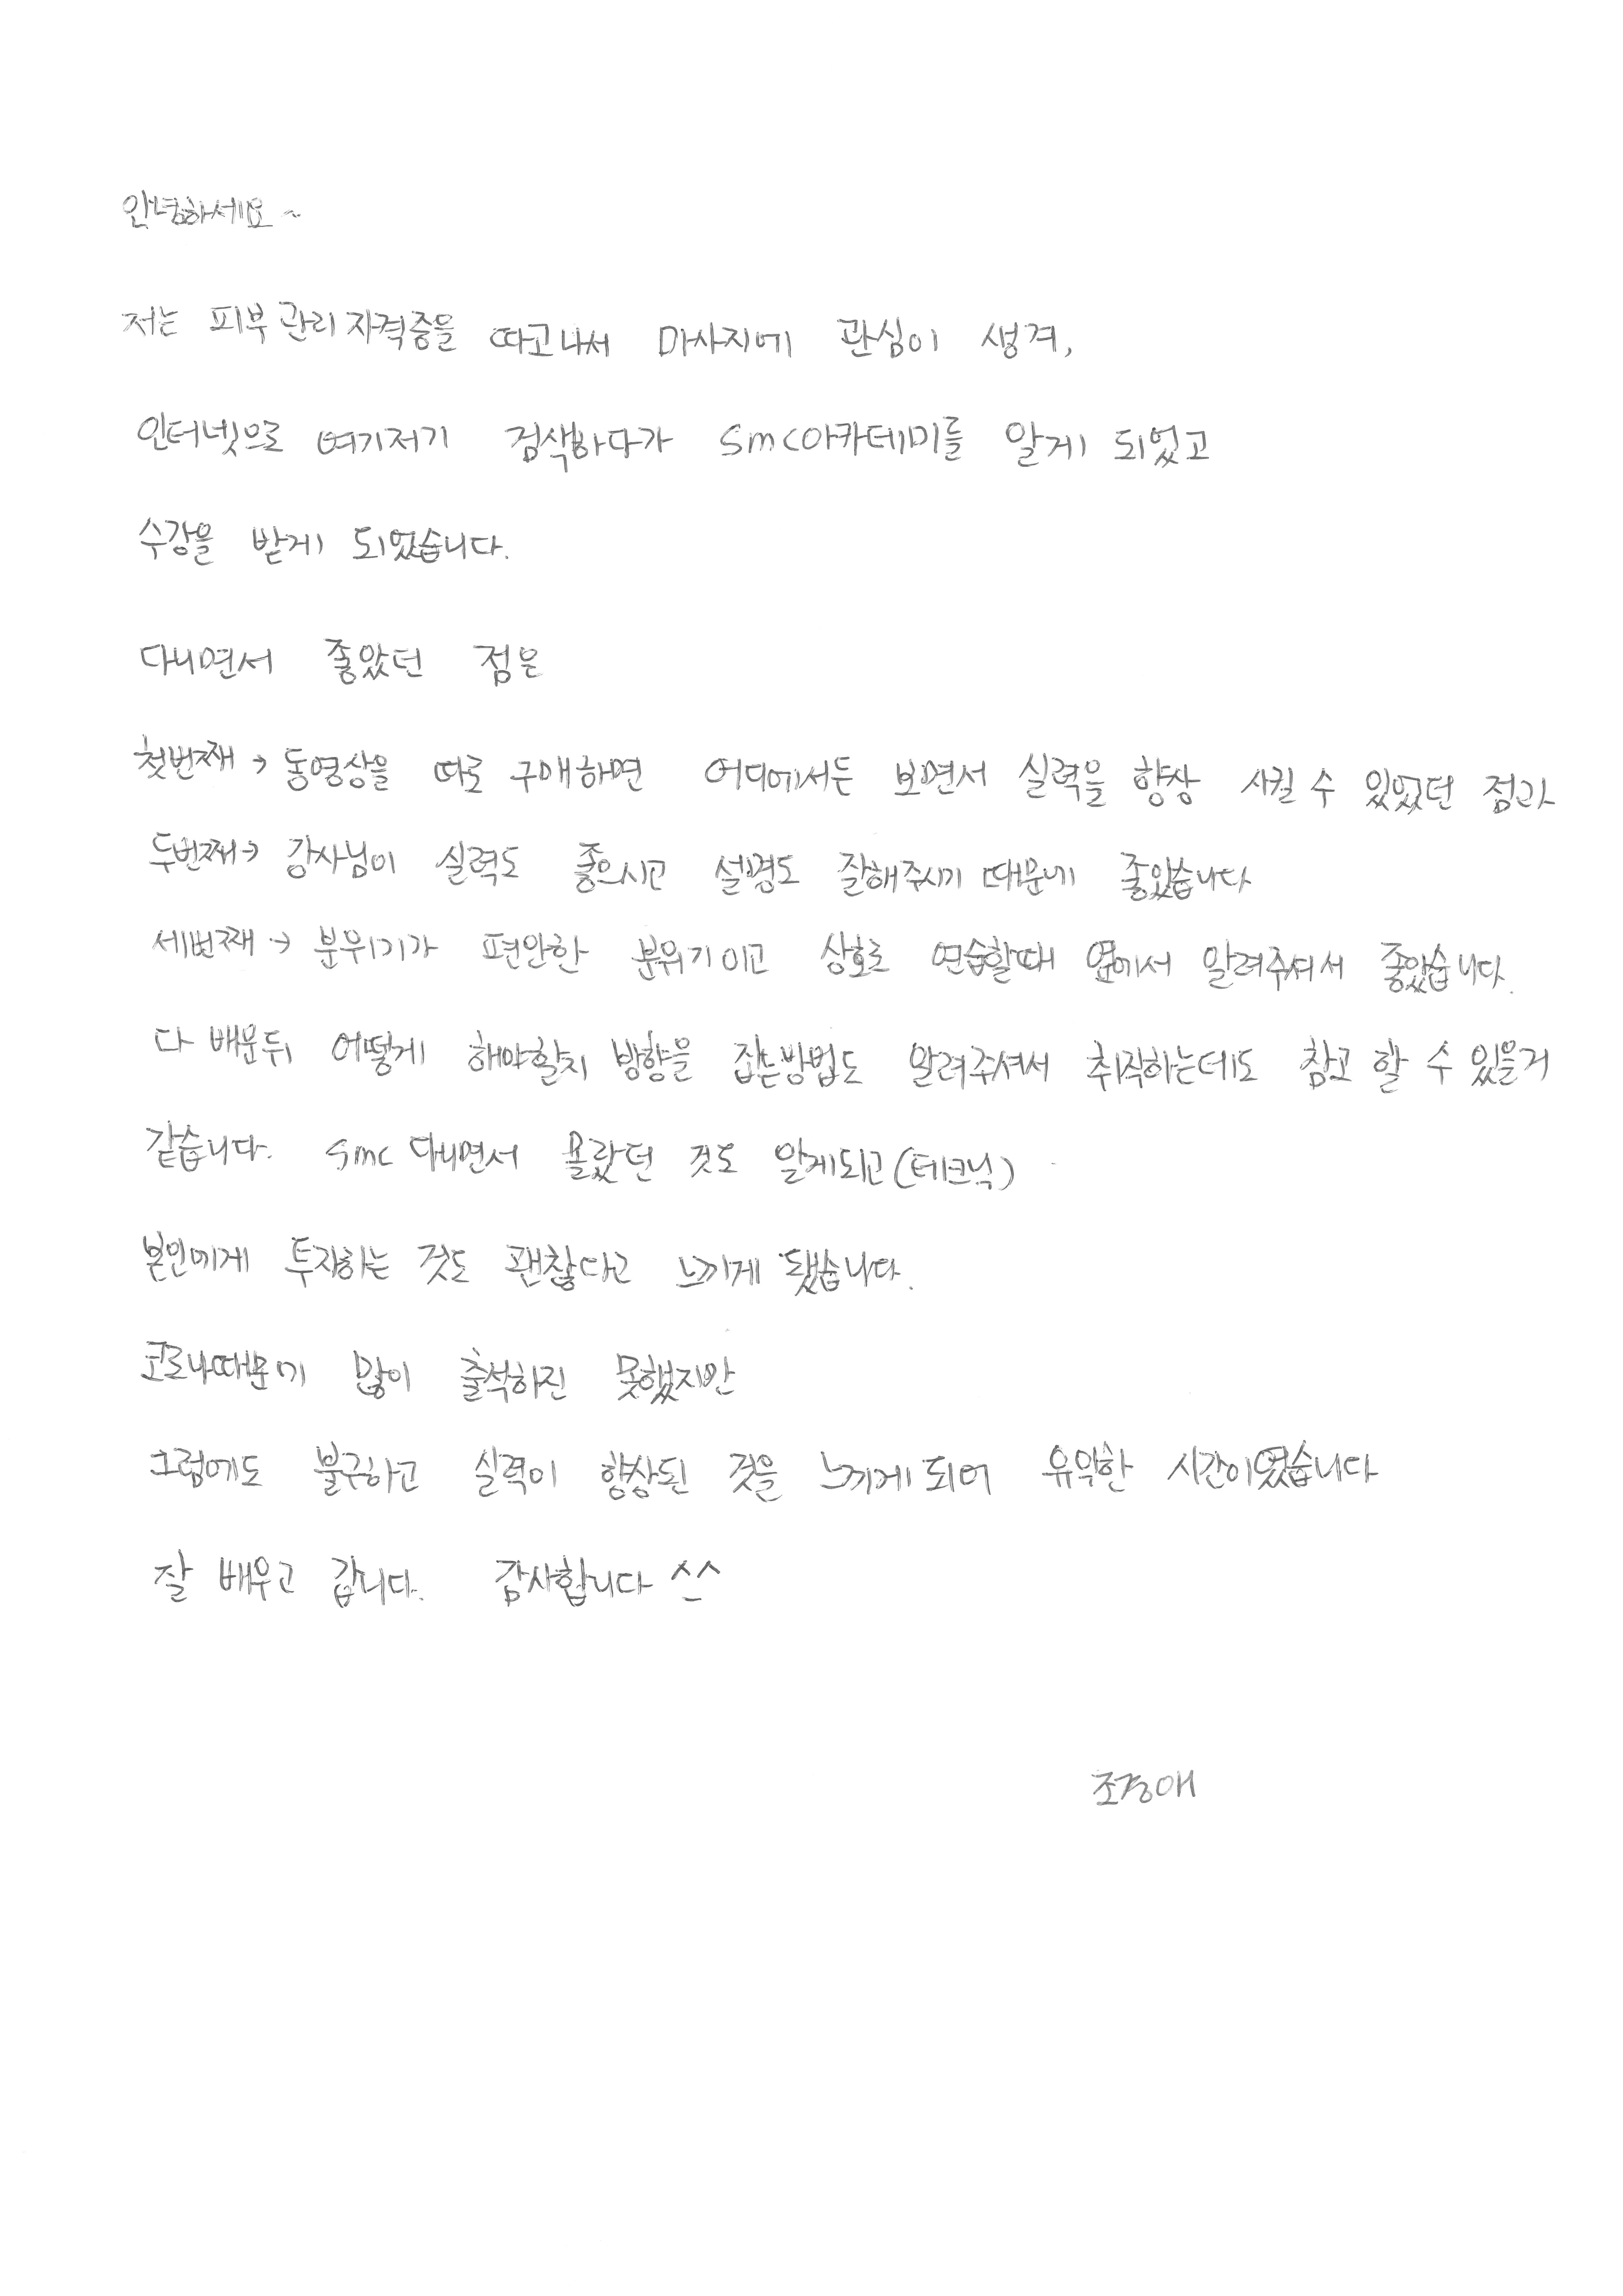 안녕하세요~
저는 피부관리자격증을 따고나서 마사지에 관심이 생겨,
인터넷으로 여기저기 검색하다가 smc아카데미를 알게 되었고
수강을 받게 되었습니다.
다니면서 좋았던 점은
첫번째→동영상을 따로 구매하면 어디에서든 보면서 실력을 향상 시킬 수 있었던 점과
두번째→ 강사님이 실력도 좋으시고 설명도 잘해주시기 때문에 좋았습니다
세번째→ 분위기가 편안한 분위기이고 상호로 연습할때 옆에서 알려주셔서 좋았습니다.
다 배운뒤 어떻게 해야할지 방향을 잡는방법도 알려주셔서 취직하는데도 참고 할 수 있을거
같습니다. smc 다니면서 몰랐던 것도 알게되고(테크닉)
본인에게 투자하는 것도 괜찮다고 느끼게 됐습니다.
코로나때문에 많이 출석하진 못했지만
그럼에도 불구하고 실력이 향상된 것을 느끼게 되어 유익한 시간이였습니다
잘 배우고 갑니다. 감사합니다 ^^
조경애